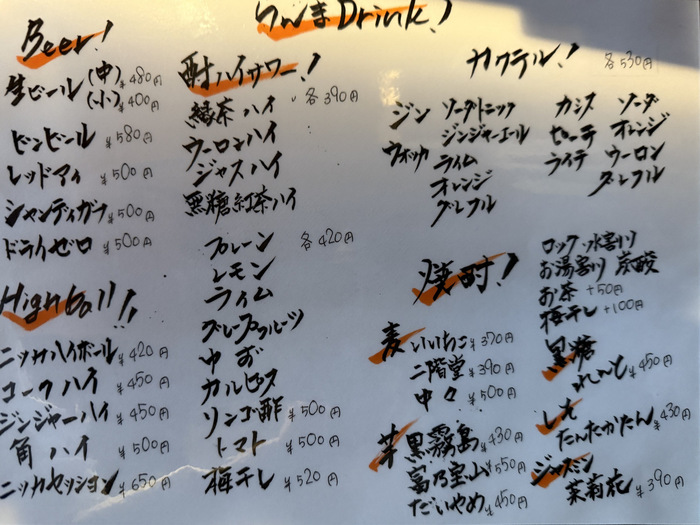 りんまDrink!
Beer!
生ビール (中) ¥480円
(小) ¥400円
ビンビール ¥580円
レッドアイ ¥500円
シャンディガフ ¥500円
ドライゼロ ¥500円
Highball!!
ニッカハイボール ¥420円
コークハイ ¥450円
ジンジャーハイ ¥450円
角ハイ ¥500円
ニッカセッション ¥650円
酎ハイサワー!
緑茶ハイ 各390円
ウーロンハイ
ジャスハイ
黒糖紅茶ハイ
プレーン 各420円
レモン
ライム
グレープフルーツ
ゆず
カルピス
リンゴ酢 ¥500円
トマト ¥500円
梅干し ¥520円
カクテル! 各530円
ジン ソーダ トニック
ウォッカ ジンジャーエール
ライム
オレンジ
グレフル
カシス ソーダ
ピーチ オレンジ
ライチ ウーロン
グレフル
焼酎!
ロック 水割り
お湯割り 炭酸
お茶 +50円
梅干し +100円
麦 いいちこ ¥370円
二階堂 ¥390円
中々 ¥500円
芋 黒霧島 ¥430円
富乃宝山 ¥550円
だいやめ ¥450円
黒糖
れんと ¥450円
しそ
たんたかたん ¥430円
ジャスミン
茉莉花 ¥390円